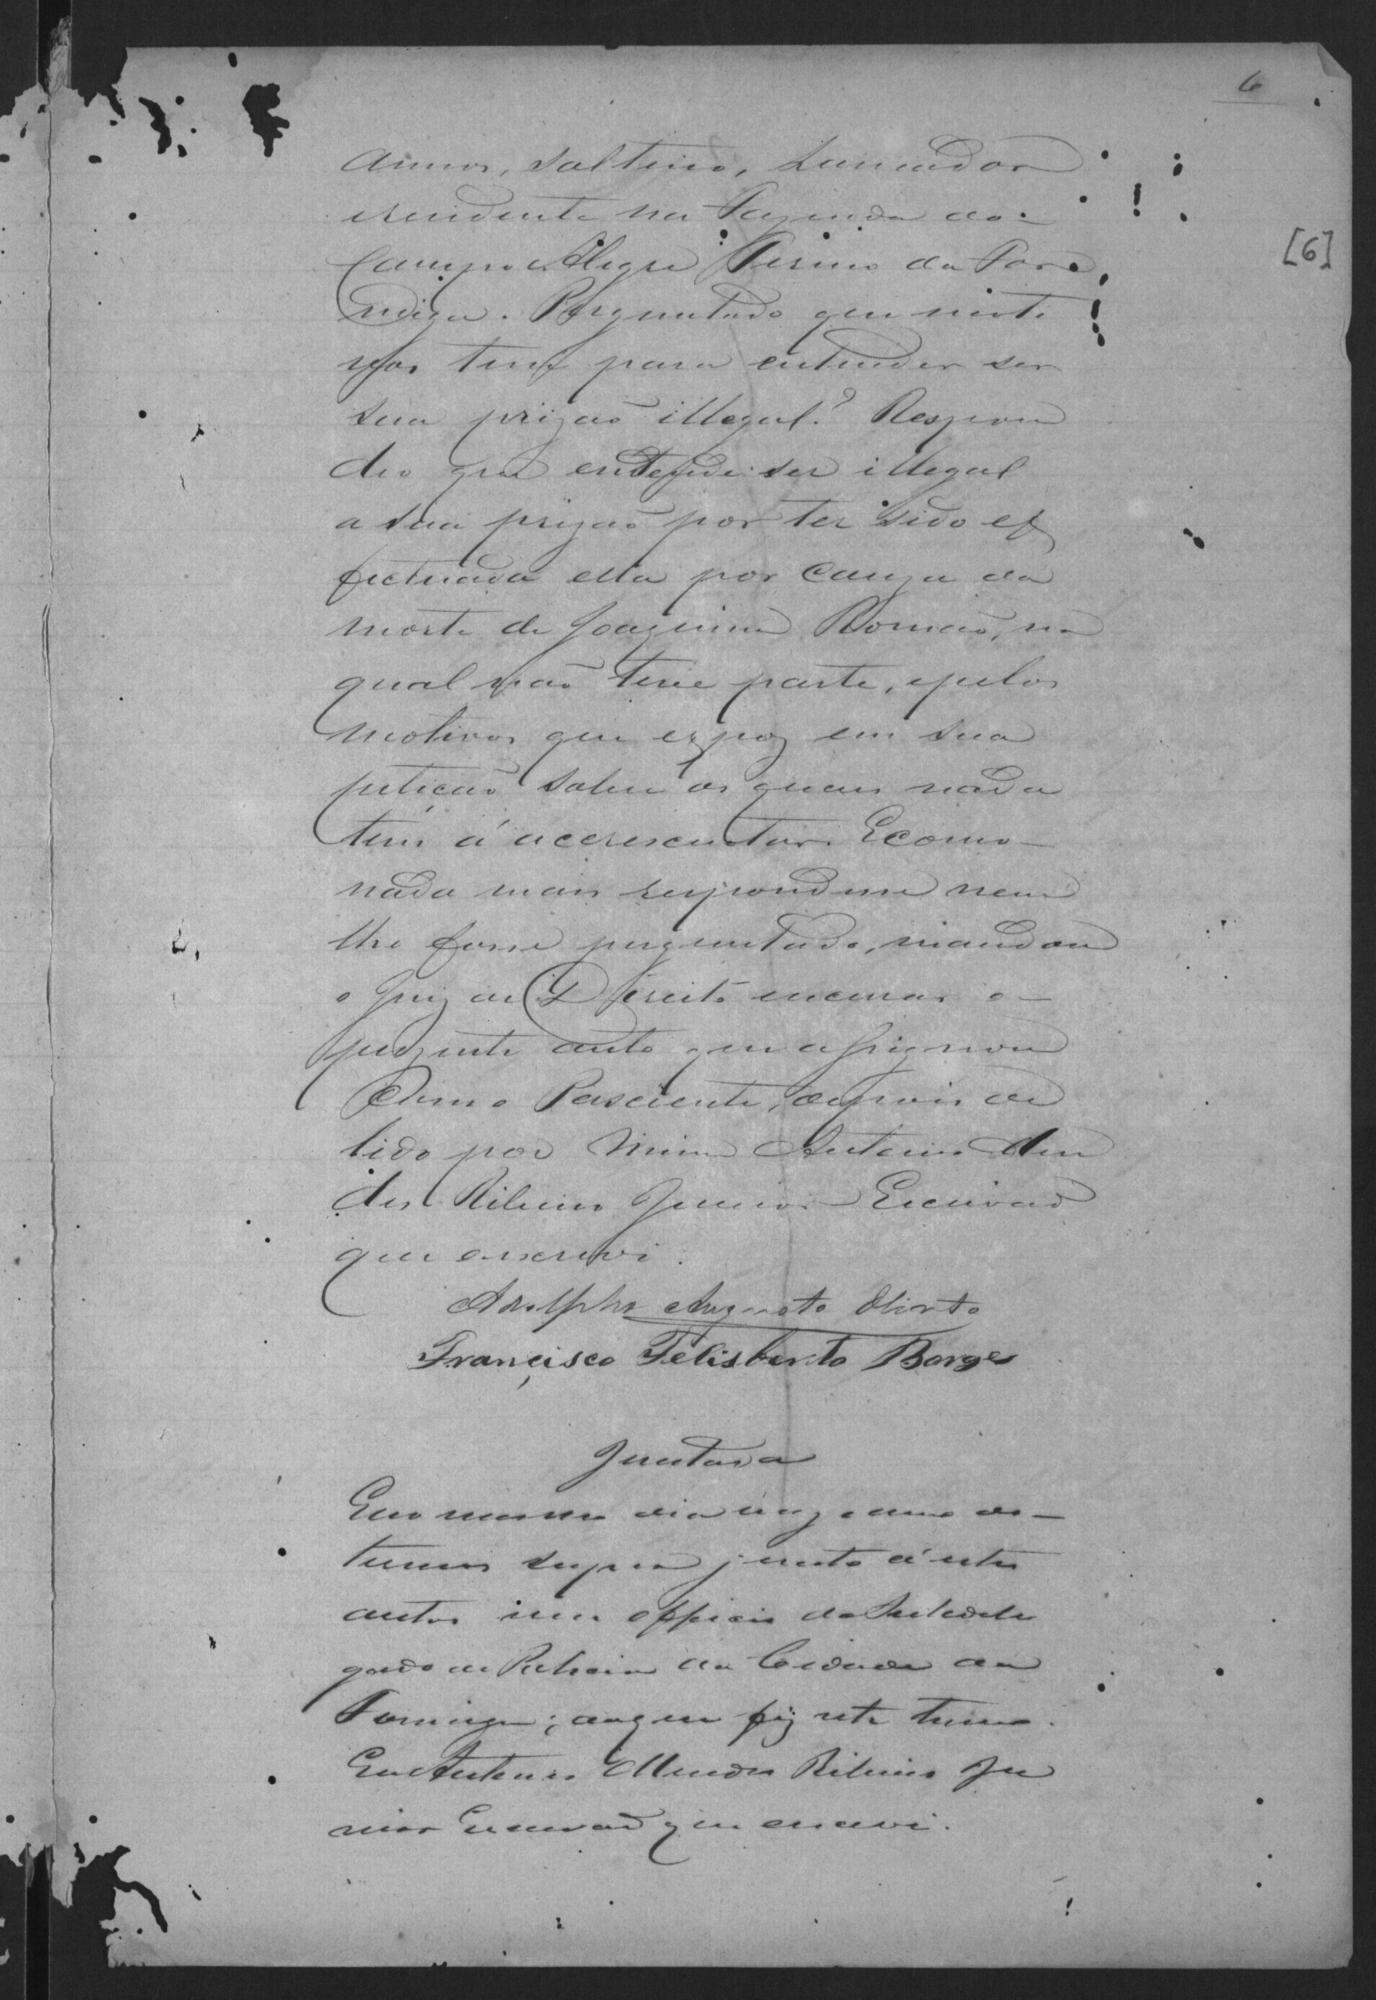 6
[6]
annos, solteiro, Lavrador
e rezidente na Fazenda do
Campo Alegre Termo da For
miga. Perguntado que moti
vos teve para entender ser
sua prizaõ illegal? Respon
deo que entende ser illegal
a sua prizaõ por ter sido ef
fectuada ella por cauza da
morte de Joaquim Romaõ, na
qual naõ teve parte, e pelos
motivos que expoz em sua
petiçaõ sobre os quais nada
tem á accrescentar. E como
nada mais respondesse nem
lhe fosse perguntado, mandou
o Juiz de Direito encerrar o
prezente auto que assignou
com o Pasciente, depois de
lido por mim Antonio Men
des Ribeiro Junior Escrivaõ
que o escrevi.
Adolpho Augusto Olinto
Francisco Felisberto Borges
Juntada
Em o mesmo dia mez e anno do
termo supra junto á estes
autos um officio do Subdele
gado de Policia da Cidade da
Formiga; do que fiz este termo.
Eu Antonio Mendes Ribeiro Ju
nior Escrivaõ que escrevi.